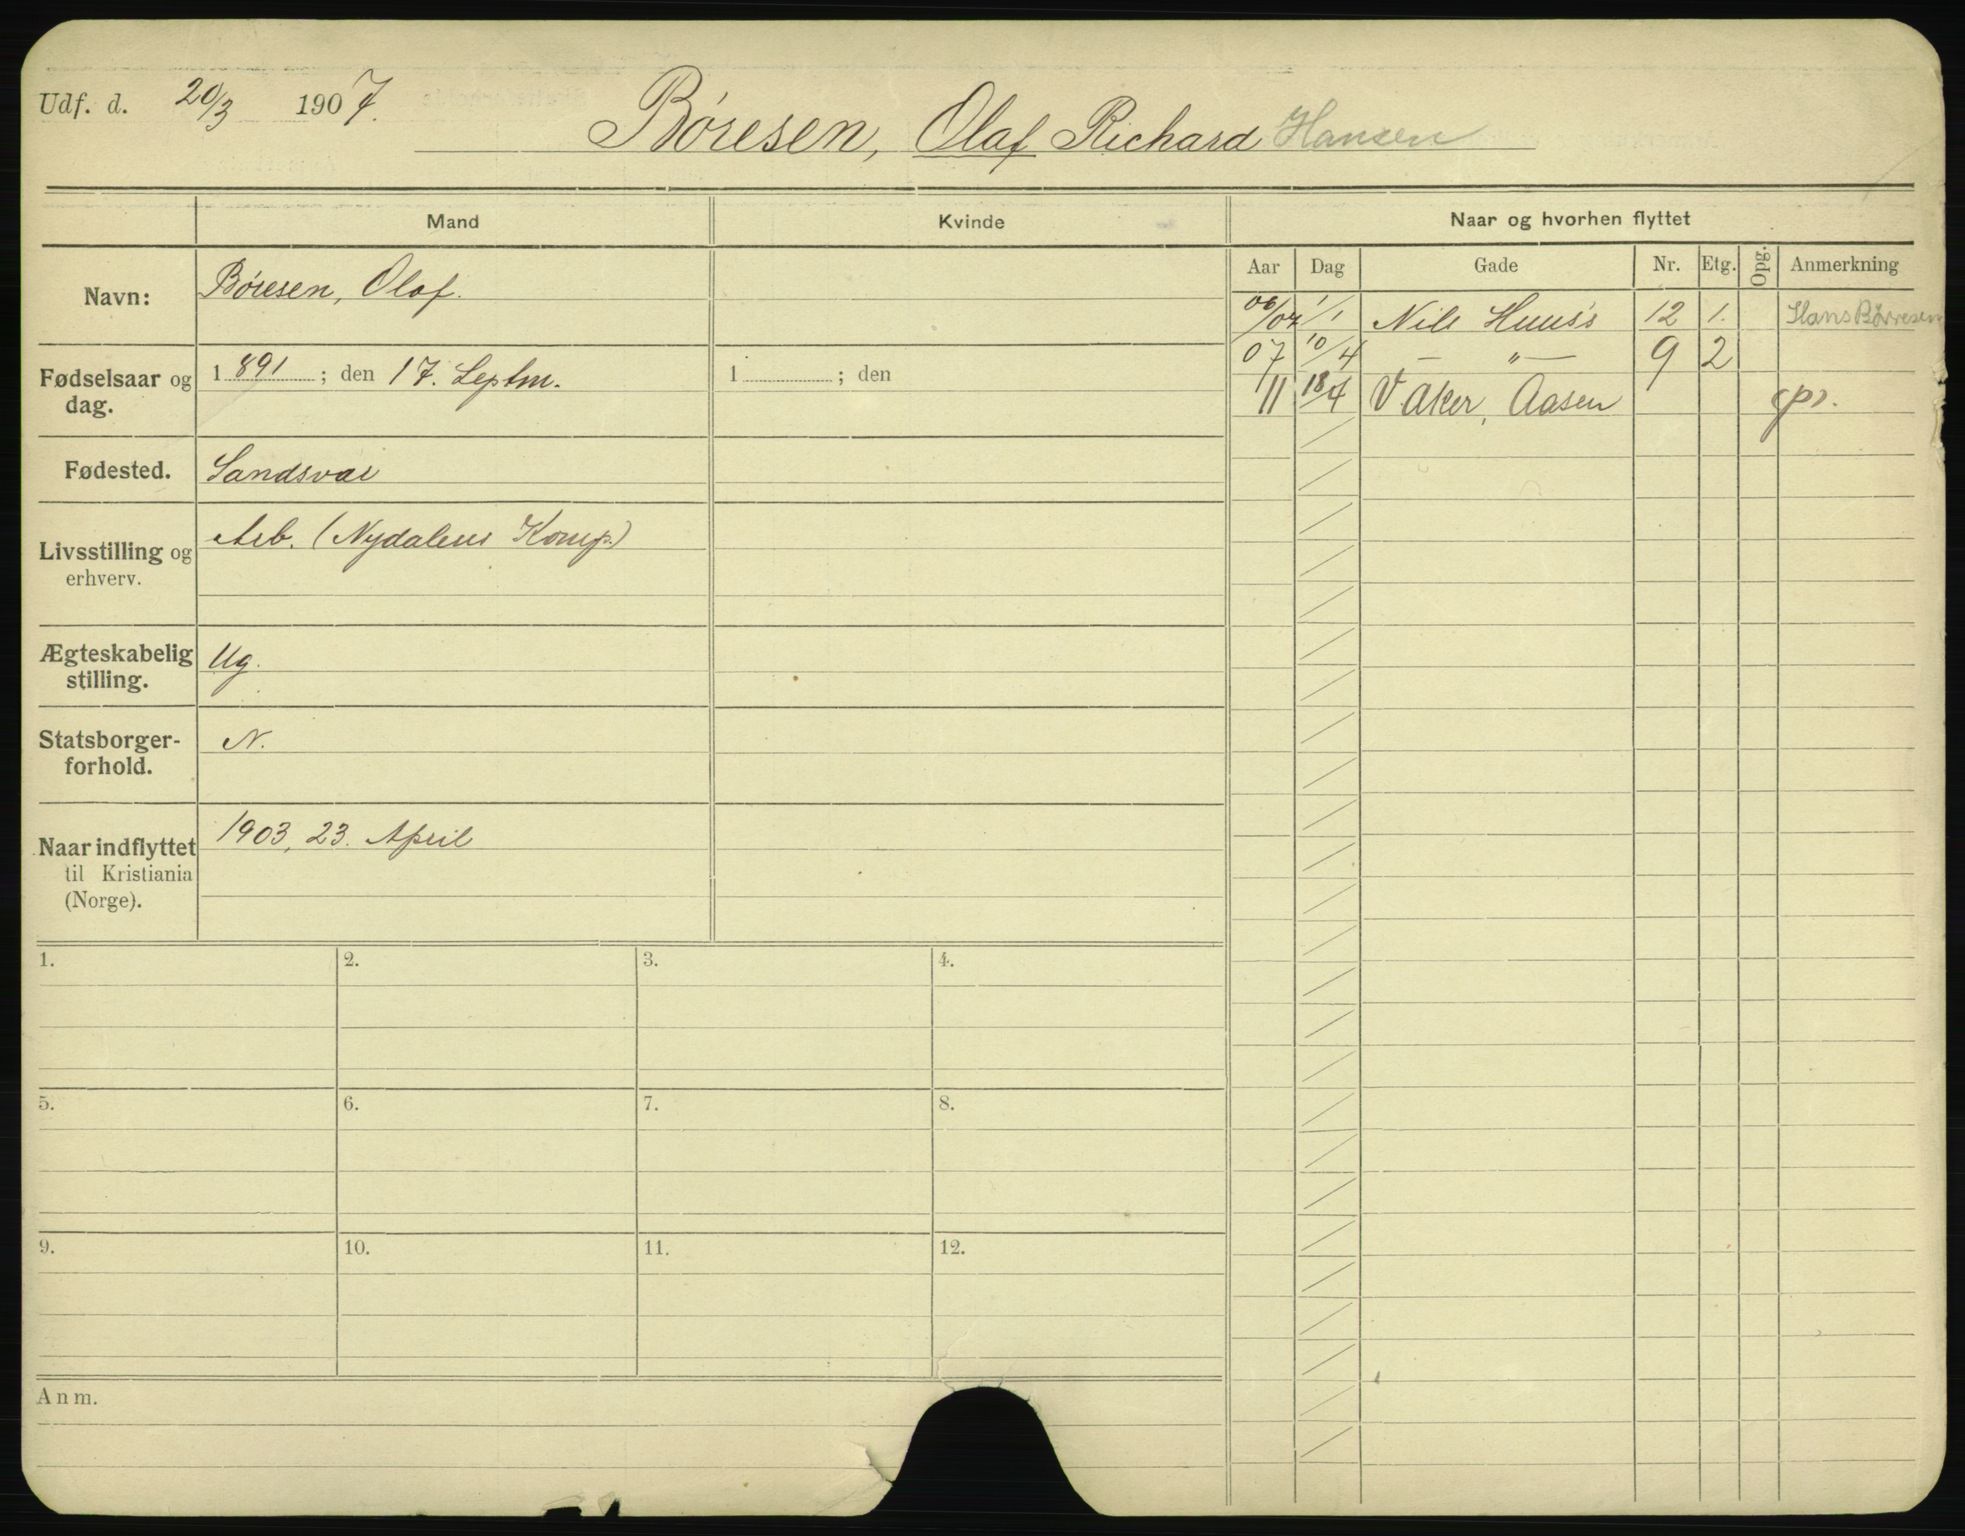 Udf. d. 20/3 1907.
Børesen, Olaf Richard Hansen
Mand
Kvinde
Naar og hvorhen flyttet
Aar Dag Gade Nr. Etg. Opg. Anmerkning
Navn: Børesen, Olaf.
06/07 1/1 Nils Huus's 12 1. Hans Børresen
07 10/4 — „ — 9 2
11 18/4 V. Aker, Aasen gpr.
Fødselsaar og dag. 1891; den 17. Septm.
1 ; den
Fødested. Sandsvær
Livsstilling og erhverv. Arb. (Nydalens Komp.)
Ægteskabelig stilling. Ug.
Statsborger-
forhold. N.
Naar indflyttet
til Kristiania
(Norge). 1903, 23. April
1. 2. 3. 4.
5. 6. 7. 8.
9. 10. 11. 12.
Anm.